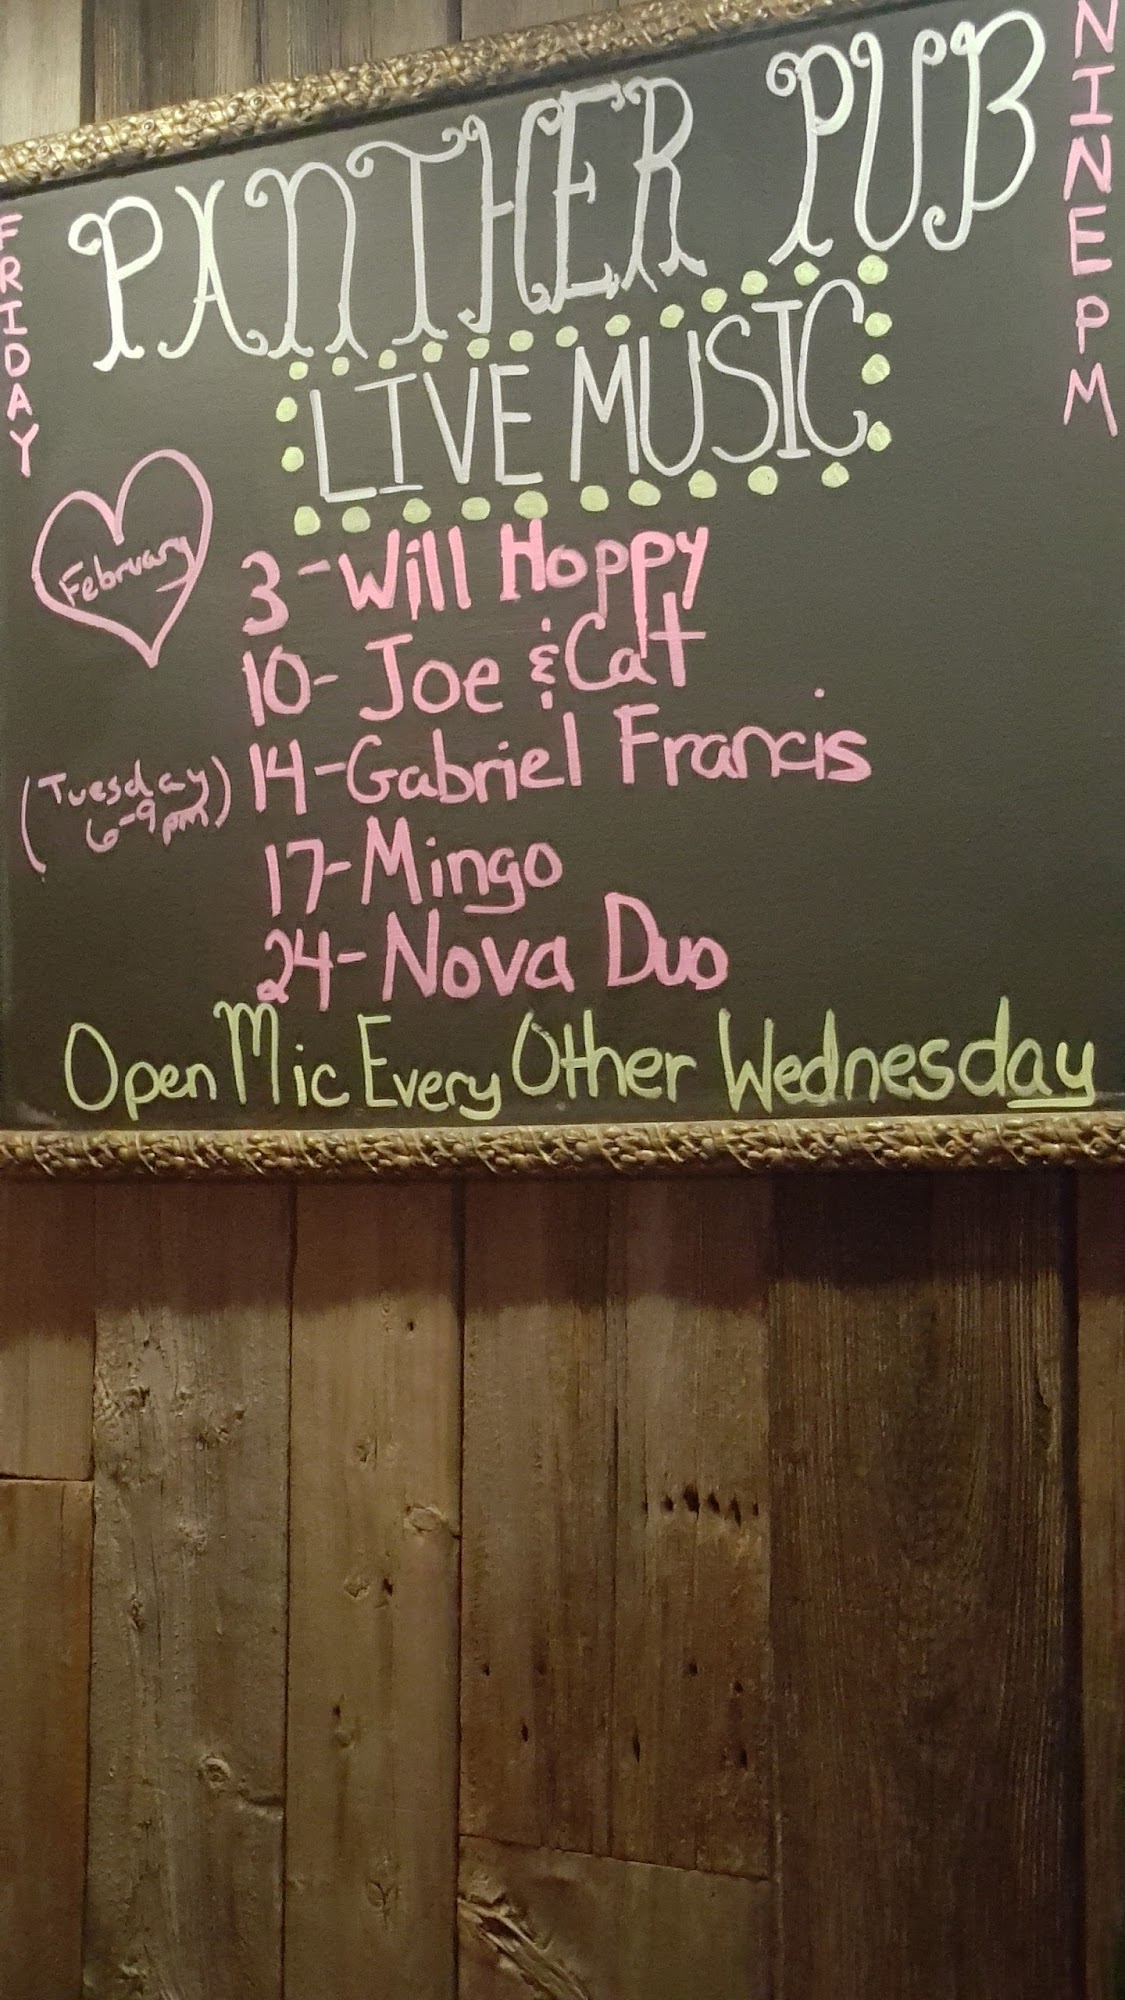 PANTHER PUB
LIVE MUSIC
FRIDAY
NINE PM
February
3-Will Hoppy
10- Joe & Cat
(Tuesday
6-9 pm)
14-Gabriel Francis
17-Mingo
24-Nova Duo
Open Mic Every Other Wednesday